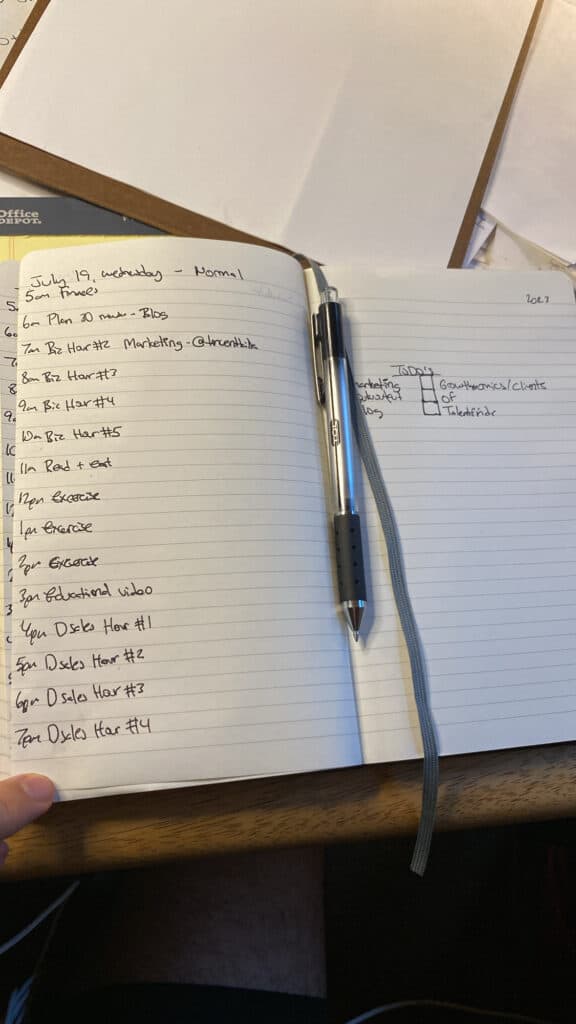 Office
DEPOT
July 19, Wednesday - Normal
5am
6am Plan 30 - Blog
7am Biz Hour #2 Marketing -
8am Biz Hour #3
9am Biz Hour #4
10am Biz Hour #5
11am Read + eat
12pm Exercise
1pm Exercise
2pm Exercise
3pm Educational video
4pm Dsales Hour #1
5pm Dsales Hour #2
6pm Dsales Hour #3
7pm Dsales Hour #4
2023
ToDo's
arketing
log
/Clients
OF